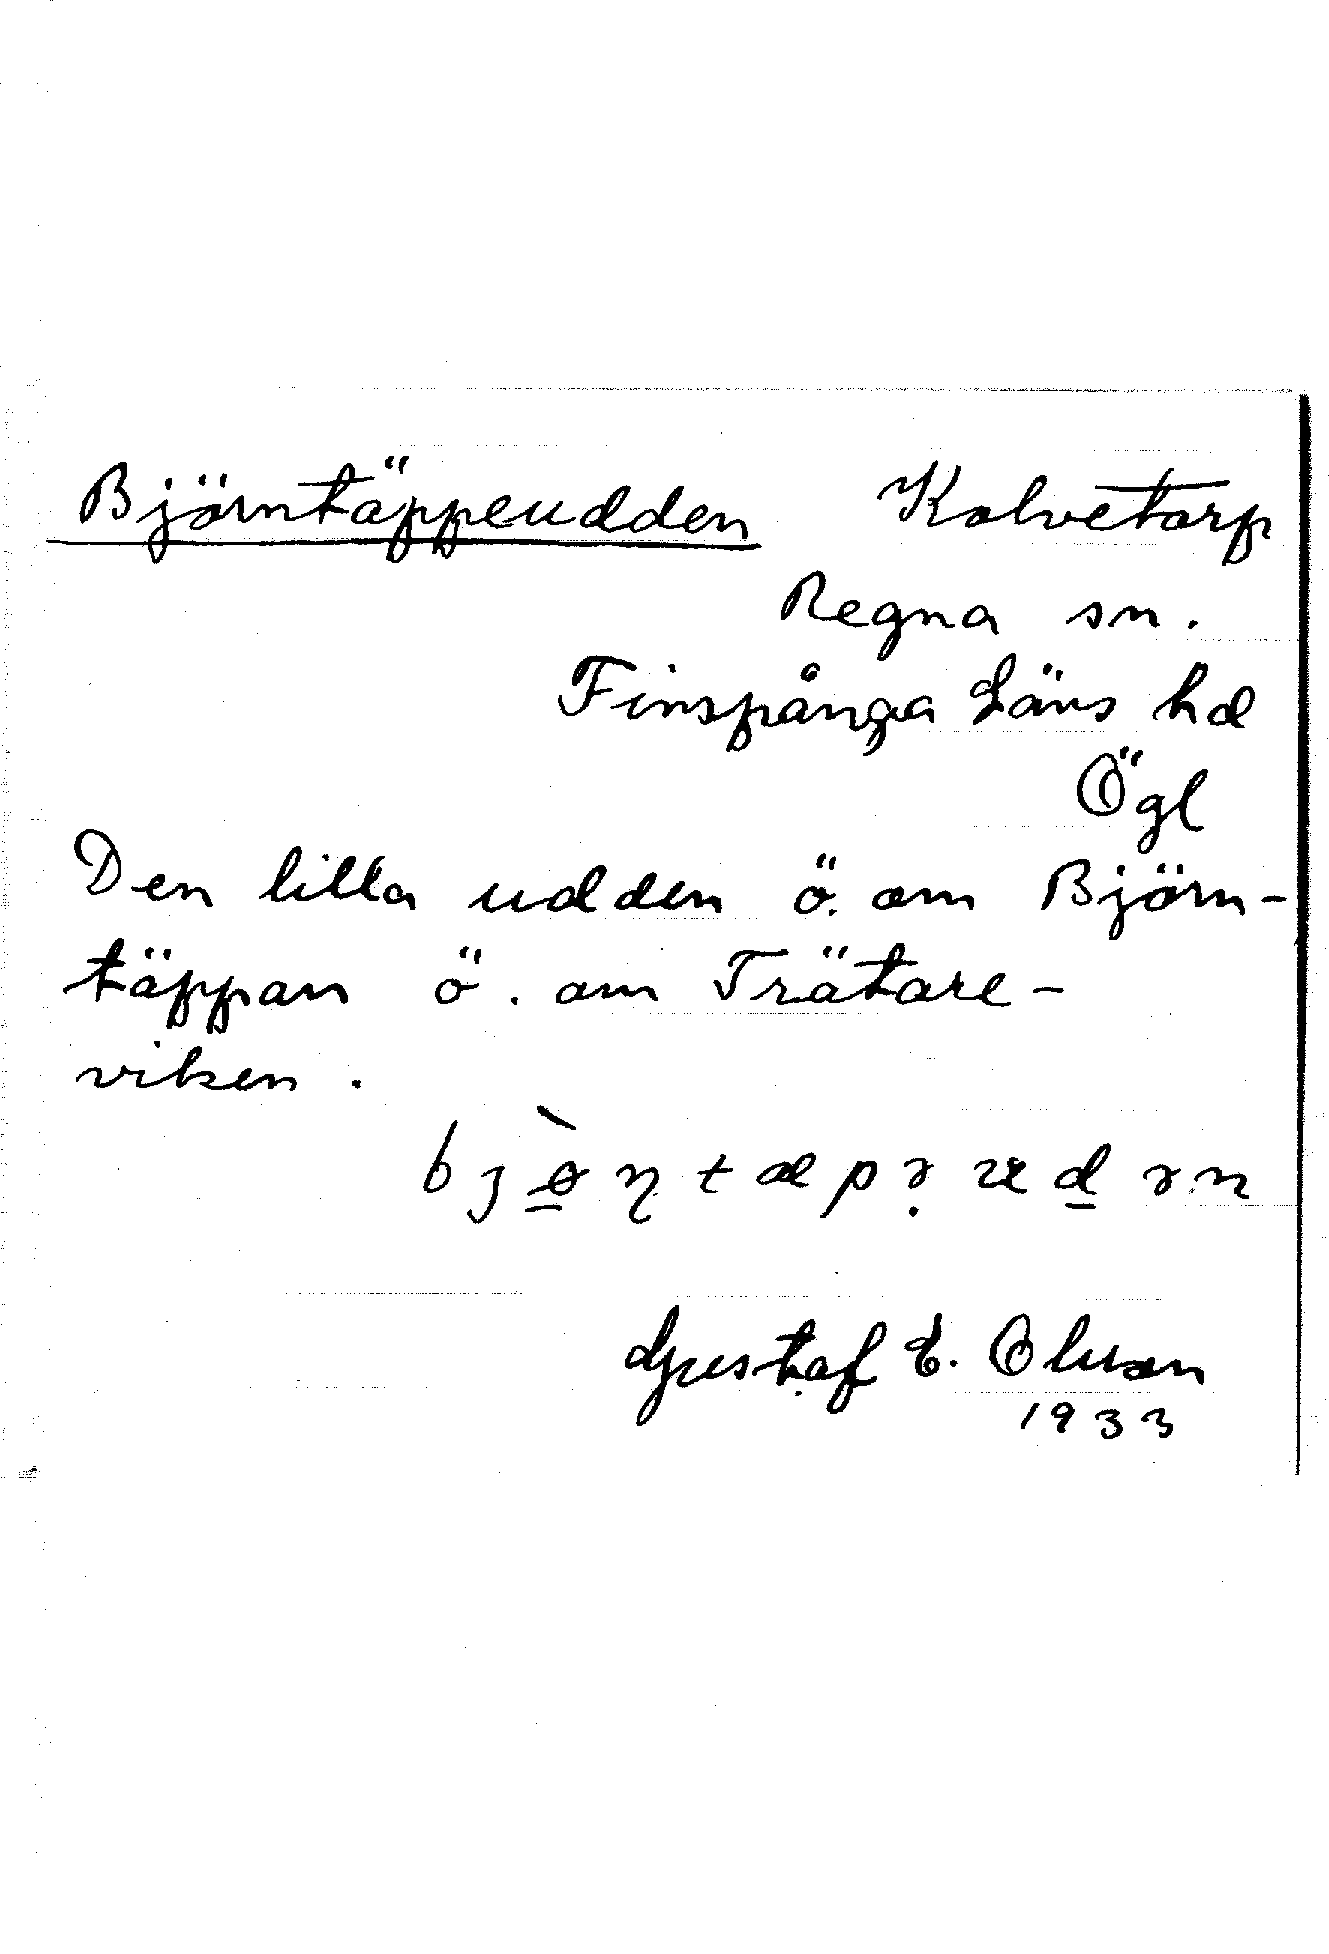 Björntäppeudden Kolvetorp
Regna sn.
Finspånga Läns hd
Ögl
Den lilla udden ö. om Björn-
täppan ö. om Trätare-
viken.
Gustaf E. Olsson
1933